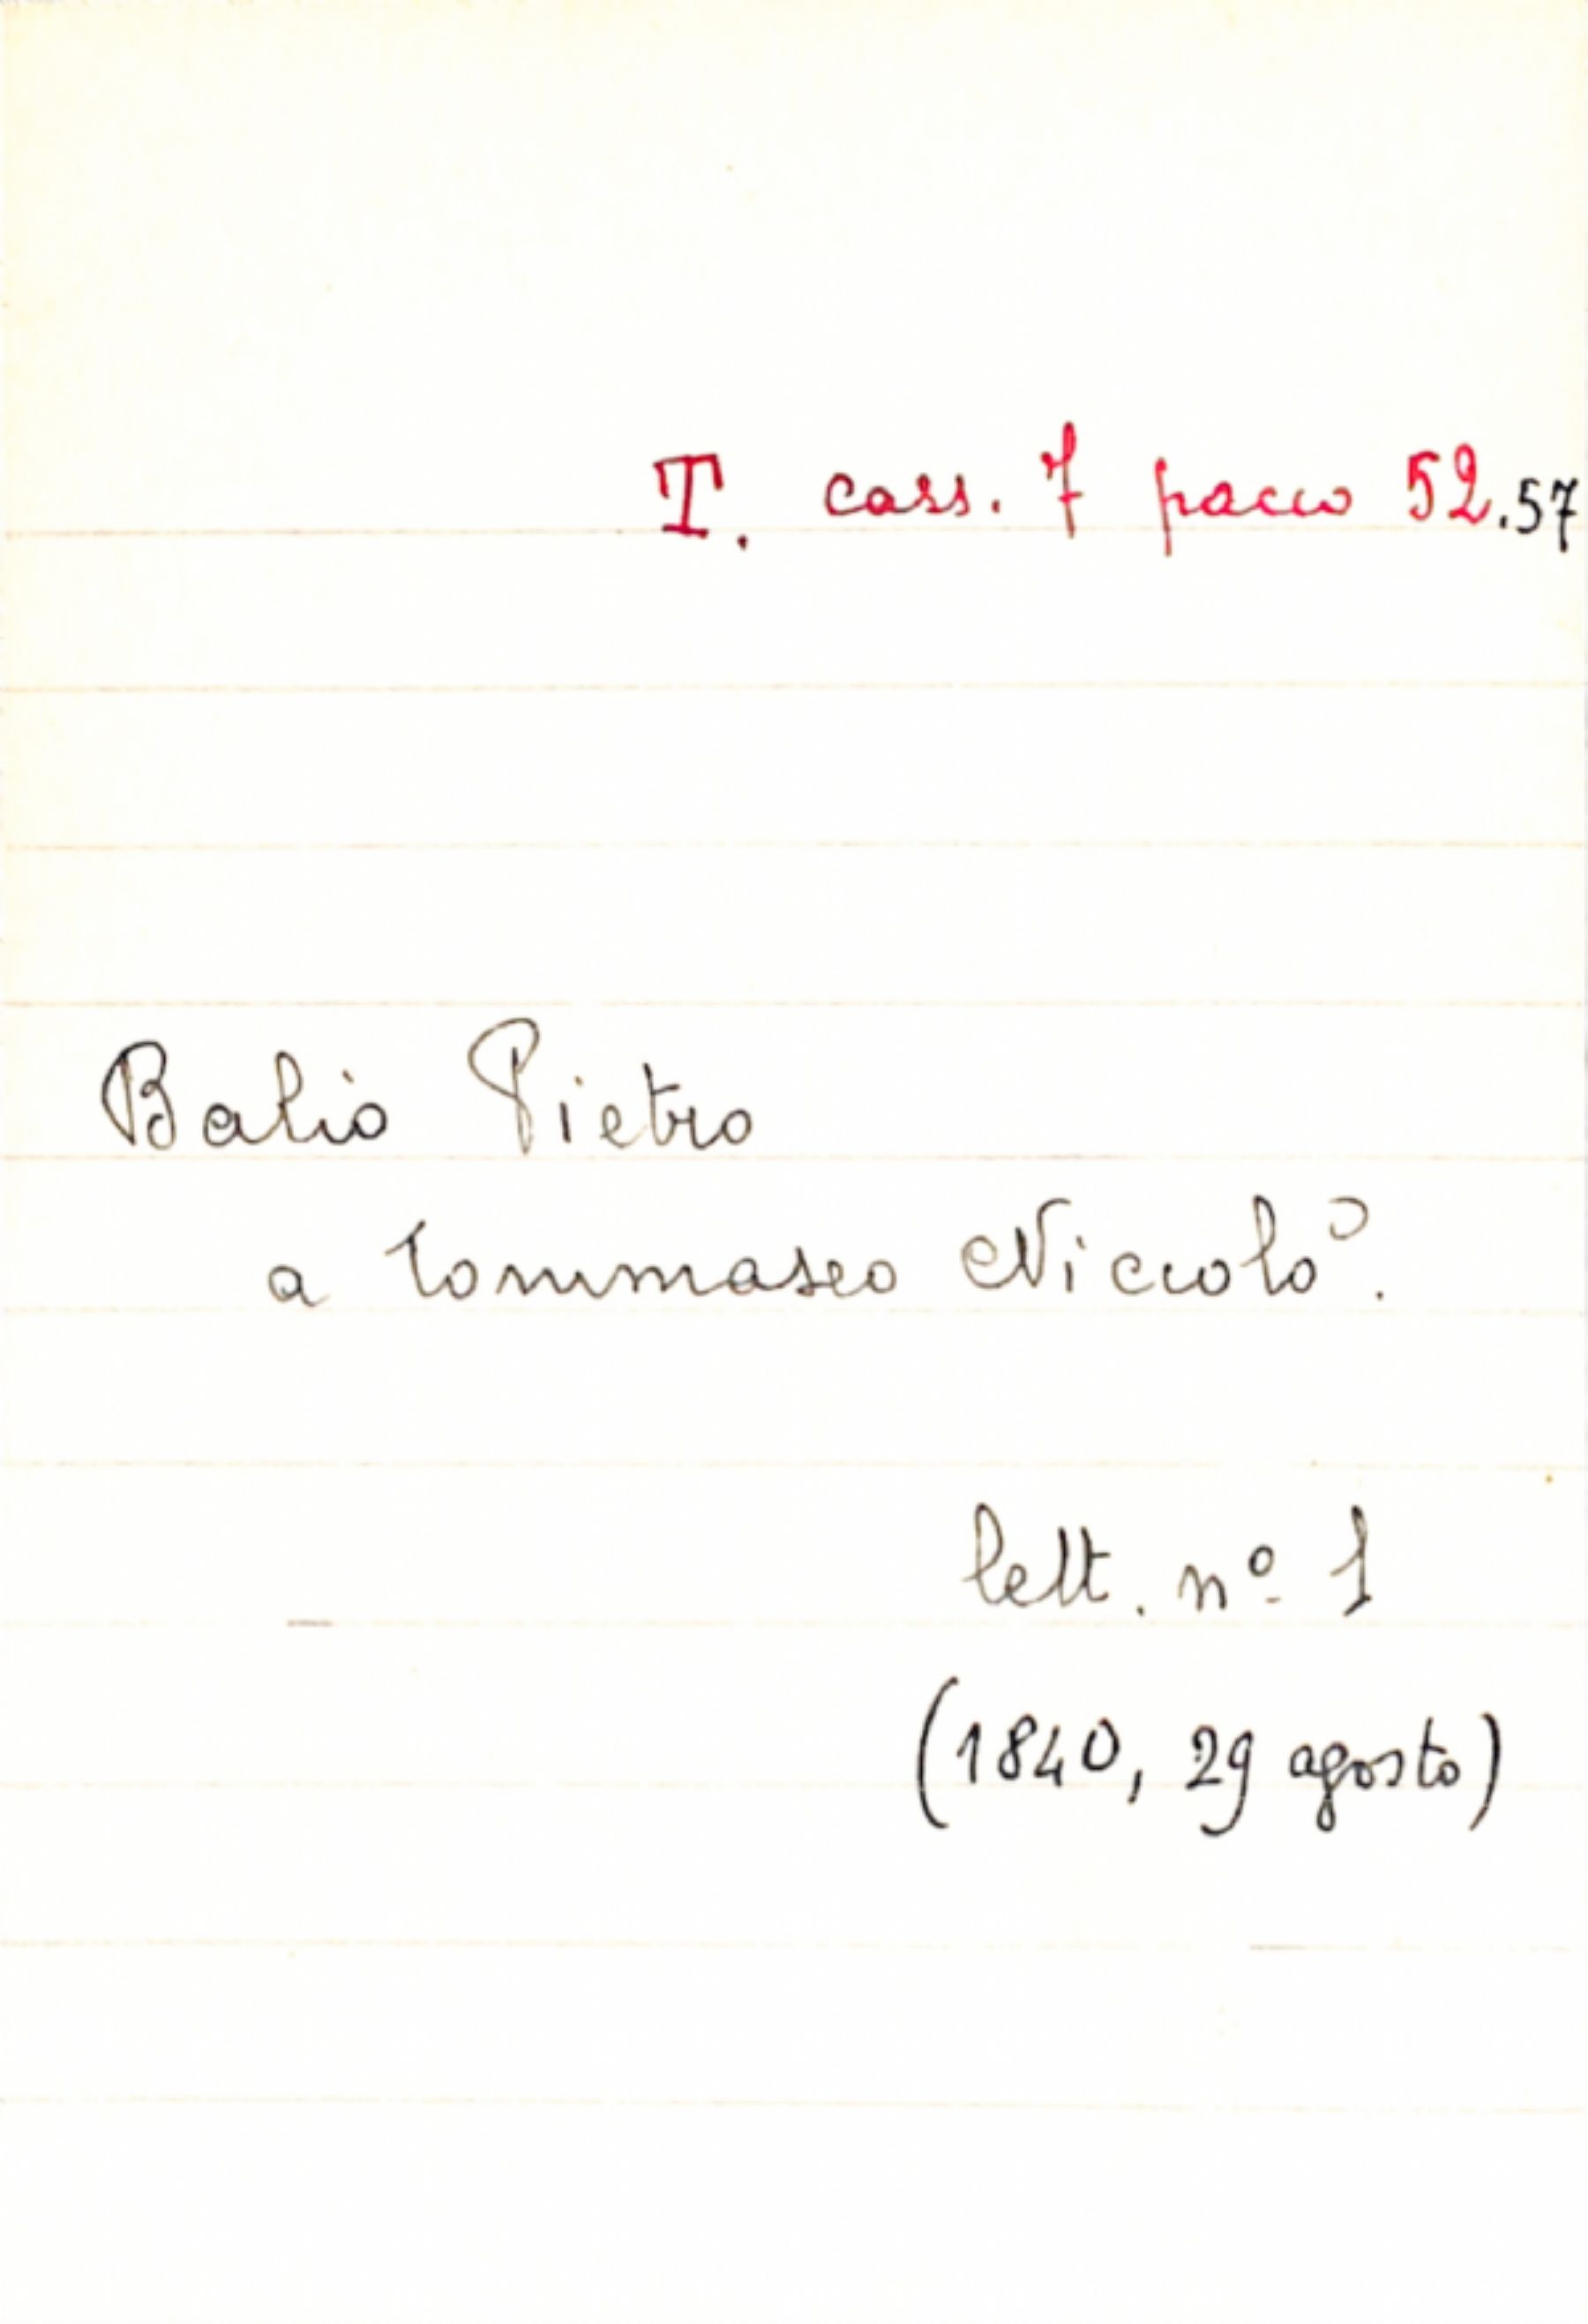 T. cass. 7 pacco 52.57
Balio Pietro
a Tommaseo Niccolò.
lett. nº 1
(1840, 29 agosto)